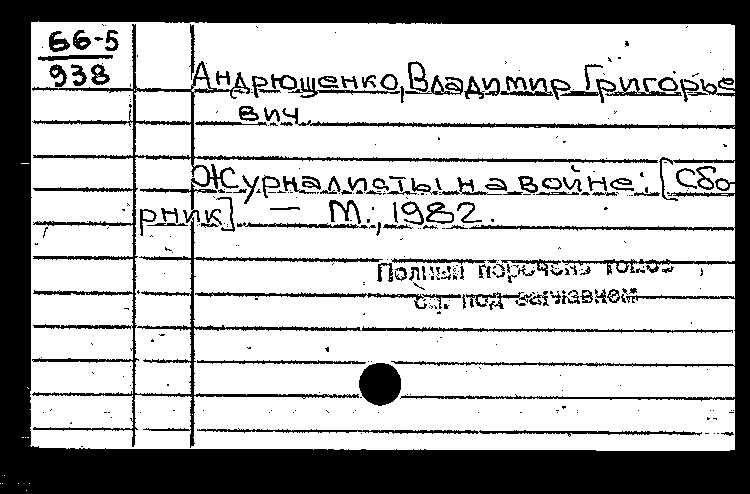 66-5
938
Андрющенко, Владимир Григорье
вич.
Журналисты на войне: [Сбо
рник] — М., 1982.
Полный перечень томов
см. под заглавием